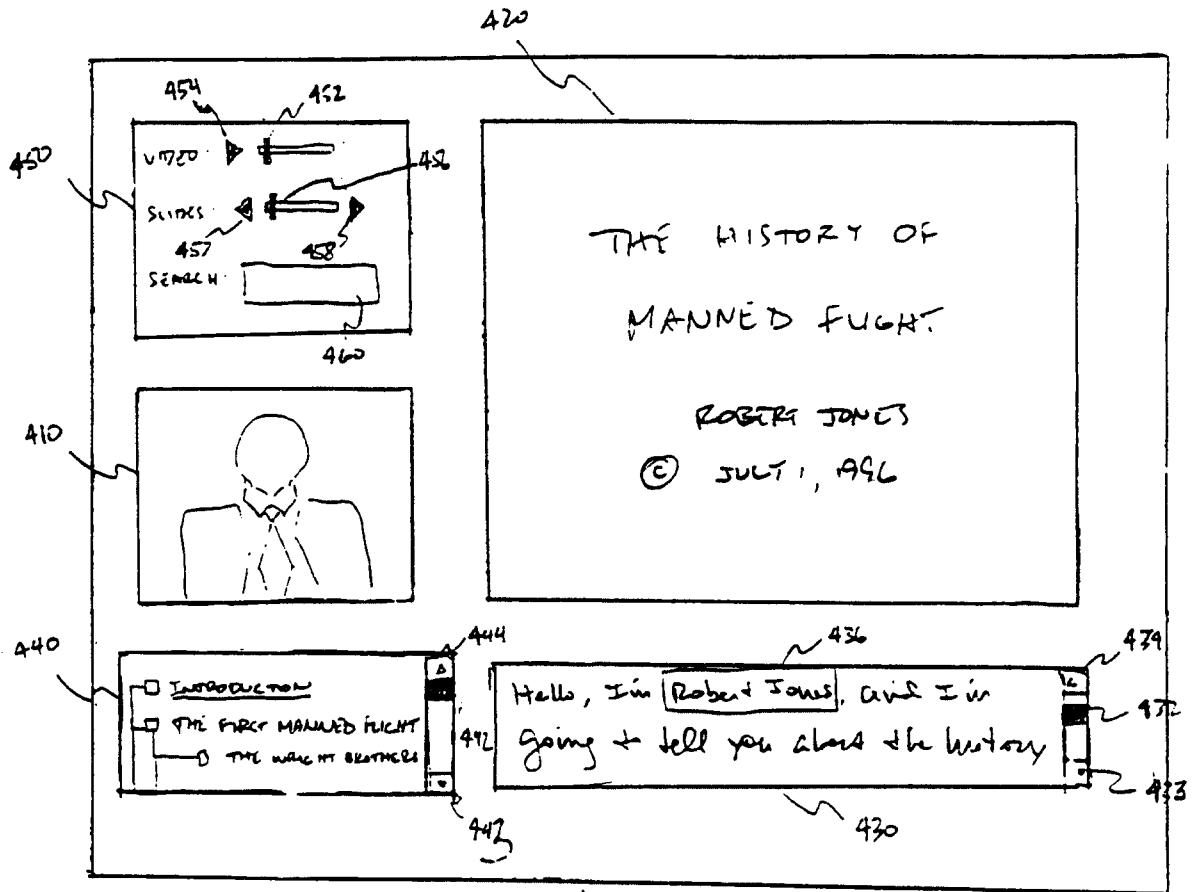 420
454
452
450
VIDEO
456
SLIDES
457
458
SEARCH
460
THE HISTORY OF
MANNED FLIGHT
ROBERT JONES
© JULY 1, 1996
410
440
444
INTRODUCTION
THE FIRST MANNED FLIGHT
THE WRIGHT BROTHERS
442
443
436
434
Hello, I'm Robert Jones, and I'm
going to tell you about the history
432
433
430